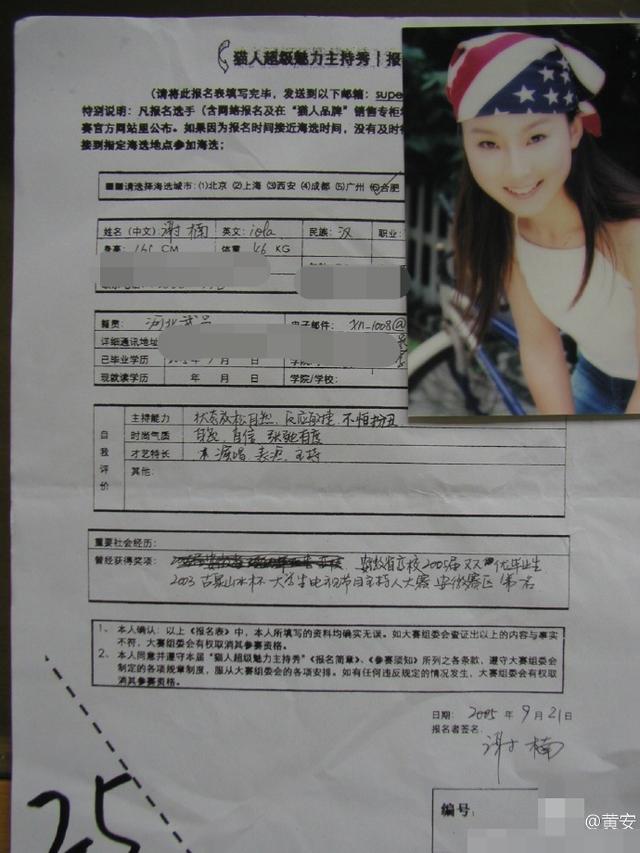 猫人超级魅力主持秀 报
(请将此报名表填写完毕,发送到以下邮箱:supe
特别说明:凡报名选手(含网络报名及在“猫人品牌”销售专柜
赛官方网站里公布。如果因为报名时间接近海选时间,没有及时
接到指定海选地点参加海选;
■■请选择海选城市:⑴北京 ⑵上海 ⑶西安 ⑷成都 ⑸广州 ⑹合肥
姓名(中文) 谢楠 英文:iola 民族:汉 职业:
身高:165 CM 体重 46 KG
籍贯: 河北 电子邮件: xn-1008@
详细通讯地址
已毕业学历 年 9 月 日 学院/
现就读学历 年 月 日 学院/学校:
自我评价
主持能力 状态放松自然、反应敏捷、不怕扮丑
时尚气质 自然、自信、张驰有度
才艺特长 演唱 表演 主持
其他:
重要社会经历:
曾经获得奖项: 安徽省 2005届双优毕业生
2003 古泉山水杯 大学生电视节目主持人大赛 安徽赛区 第一名
1、本人确认:以上《报名表》中,本人所填写的资料均确实无误。如大赛组委会查证出以上的内容与事实
不符,大赛组委会有权取消其参赛资格。
2、本人同意并遵守本届“猫人超级魅力主持秀”《报名简章》、《参赛须知》所列之各条款,遵守大赛组委会
制定的各项规章制度,服从大赛组委会的各项安排。如有任何违反规定的情况发生,大赛组委会有权取
消其参赛资格。
日期: 2005 年 9 月 21 日
报名者签名:
谢楠
编号:
25
@黄安